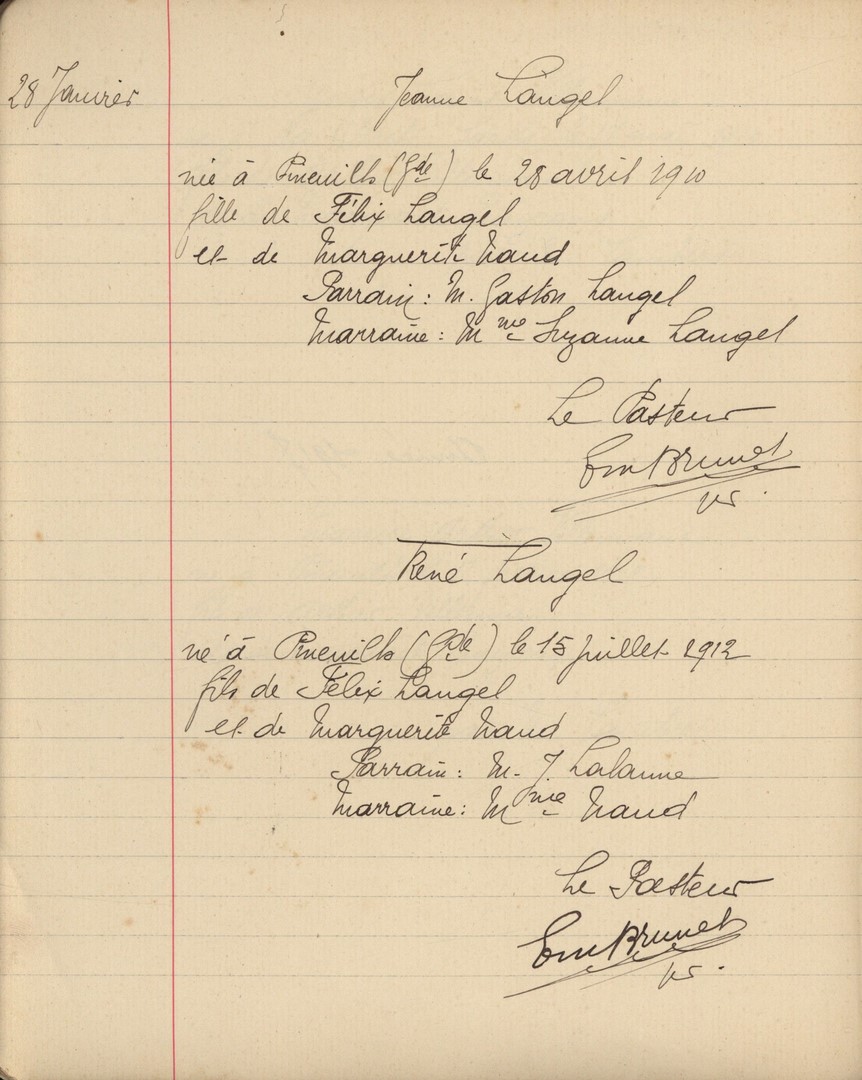 28 Janvier
Jeanne Langel
née à Pineuilh (Gde) le 28 avril 1910
fille de Félix Langel
et de Marguerite Naud
Parrain: M. Gaston Langel
Marraine: Mme Suzanne Langel
Le Pasteur
Em Brunet
René Langel
né à Pineuilh (Gde) le 15 juillet 1912
fils de Félix Langel
et de Marguerite Naud
Parrain: M. J. Lalanne
Marraine: Mme Naud
Le Pasteur
Em Brunet